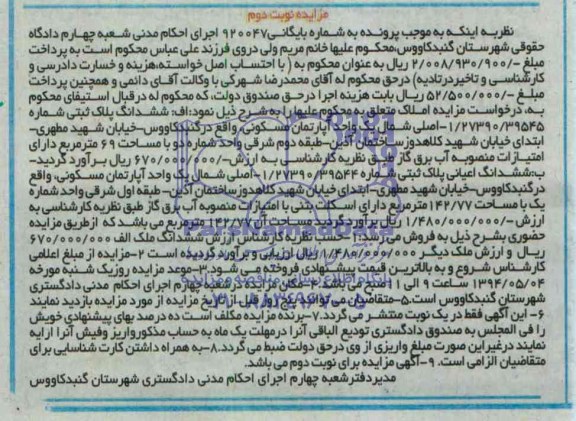 مزایده نوبت دوم
نظر به اینکه به موجب پرونده به شماره بایگانی ۹۲۰۰۴۷ اجرای احکام مدنی شعبه چهارم دادگاه
حقوقی شهرستان گنبدکاووس،محکوم علیها خانم مریم ولی دروی فرزند علی عباس محکوم است به پرداخت
مبلغ -/۲/۰۰۸/۹۳۰/۹۰۰ ریال به عنوان محکوم به ( با احتساب اصل خواسته،هزینه و خسارت دادرسی و
کارشناسی و تاخیر تادیه) درحق محکوم له آقای محمدرضا شهرکی با وکالت آقای دائمی و همچنین پرداخت
مبلغ -/۵۲/۵۰۰/۰۰۰ ریال بابت هزینه اجرا درحق صندوق دولت، که محکوم له درقبال استیفای محکوم
به، درخواست مزایده املاک متعلق به محکوم علیها را به شرح ذیل نمود:الف: ششدانگ پلاک ثبتی شماره
۱/۲۷۳۹۰/۳۹۵۴۵-اصلی شمال یک واحد آپارتمان مسکونی واقع در گنبدکاووس-خیابان شهید مطهری-
ابتدای خیابان شهید کلاهدوز ساختمان آذین-طبقه دوم شرقی واحد شماره دو با مساحت ۶۹ مترمربع دارای
امتیازات منصوبه آب برق گاز طبق نظریه کارشناسی به ارزش-/۶۷۰/۰۰۰/۰۰۰ ریال برآورد گردید-
ب:ششدانگ اعیانی پلاک ثبتی شماره ۱/۲۷۳۹۰/۳۹۵۴۴-اصلی شمال یک واحد آپارتمان مسکونی، واقع
درگنبدکاووس-خیابان شهید مطهری-ابتدای خیابان شهید کلاهدوز ساختمان آذین- طبقه اول شرقی واحد شماره
یک با مساحت ۱۴۲/۷۷ مترمربع دارای اسکلت بتنی با امتیازات منصوبه آب برق گاز طبق نظریه کارشناسی به
ارزش-/۱/۴۸۰/۰۰۰/۰۰۰ ریال برآورد گردید مساحت آن ۱۴۲/۷۷ مترمربع می باشد که ازطریق مزایده
حضوری بشرح ذیل به فروش می رسد:۱-حسب نظریه کارشناس ارزش ششدانگ ملک الف ۶۷۰/۰۰۰/۰۰۰
ریال و ارزش ملک دیگر ۱/۴۸۰/۰۰۰/۰۰۰ ریال ارزیابی و برآورد گردیده است ۲-مزایده از مبلغ اعلامی
کارشناس شروع و به بالاترین قیمت پیشنهادی فروخته می شود.۳-موعد مزایده روزیک شنبه مورخه
۱۳۹۴/۰۵/۰۴ ساعت ۹ الی ۱۱ صبح می باشد ۴-مکان مزایده: شعبه چهارم اجرای احکام مدنی دادگستری
شهرستان گنبدکاووس است.۵-متقاضیان می توانند پنج روز قبل از تاریخ مزایده از مورد مزایده بازدید نمایند
۶- این آگهی فقط در یک نوبت منتشر می گردد.۷-برنده مزایده مکلف است ده درصد بهای پیشنهادی خویش
را فی المجلس به صندوق دادگستری تودیع الباقی آنرا درمهلت یک ماه به حساب مذکور واریز وفیش آنرا ارایه
نمایند درغیر این صورت مبلغ واریزی از وی درحق دولت ضبط می گردد.۸-به همراه داشتن کارت شناسایی برای
متقاضیان الزامی است. ۹-آگهی مزایده برای نوبت دوم می باشد.
مدیردفترشعبه چهارم اجرای احکام مدنی دادگستری شهرستان گنبدکاووس
ParsNamadData